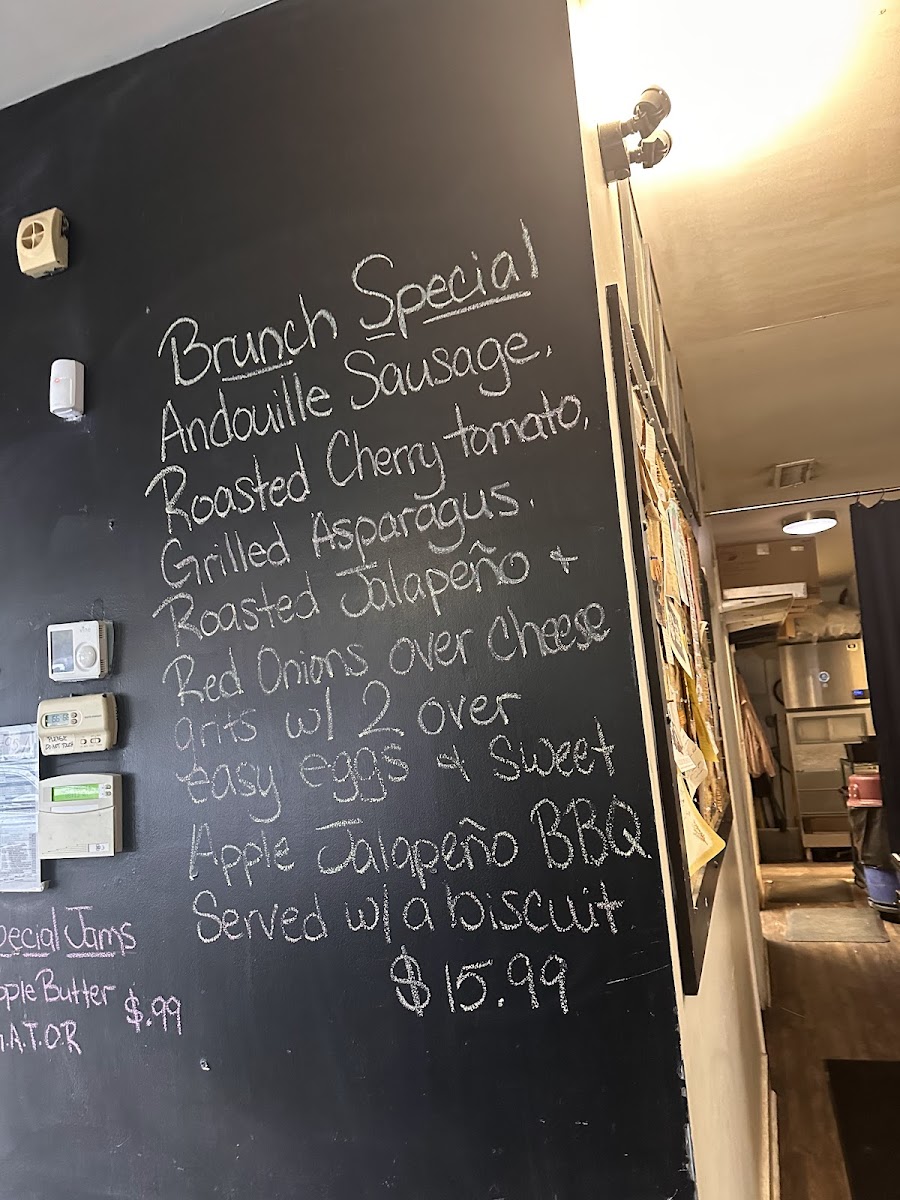 Brunch Special
Andouille Sausage,
Roasted Cherry tomato,
Grilled Asparagus,
Roasted Jalapeño +
Red Onions over Cheese
grits w/ 2 over
easy eggs + Sweet
Apple Jalapeño BBQ
Served w/ a biscuit
$15.99
pecial Jams
pple Butter $.99
M.A.T.O.R
PLEASE
DO NOT TOUCH